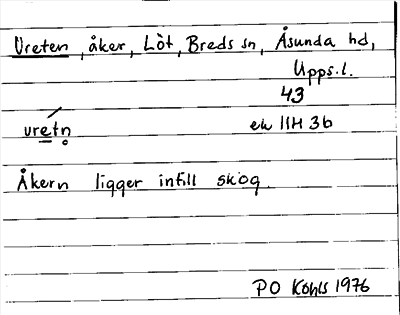 Ureten, åker, Löt, Breds sn, Åsunda hd,
Upps.l.
43
uretn̥ ek 11H 3b
Åkern ligger intill skog.
PO Kohls 1976